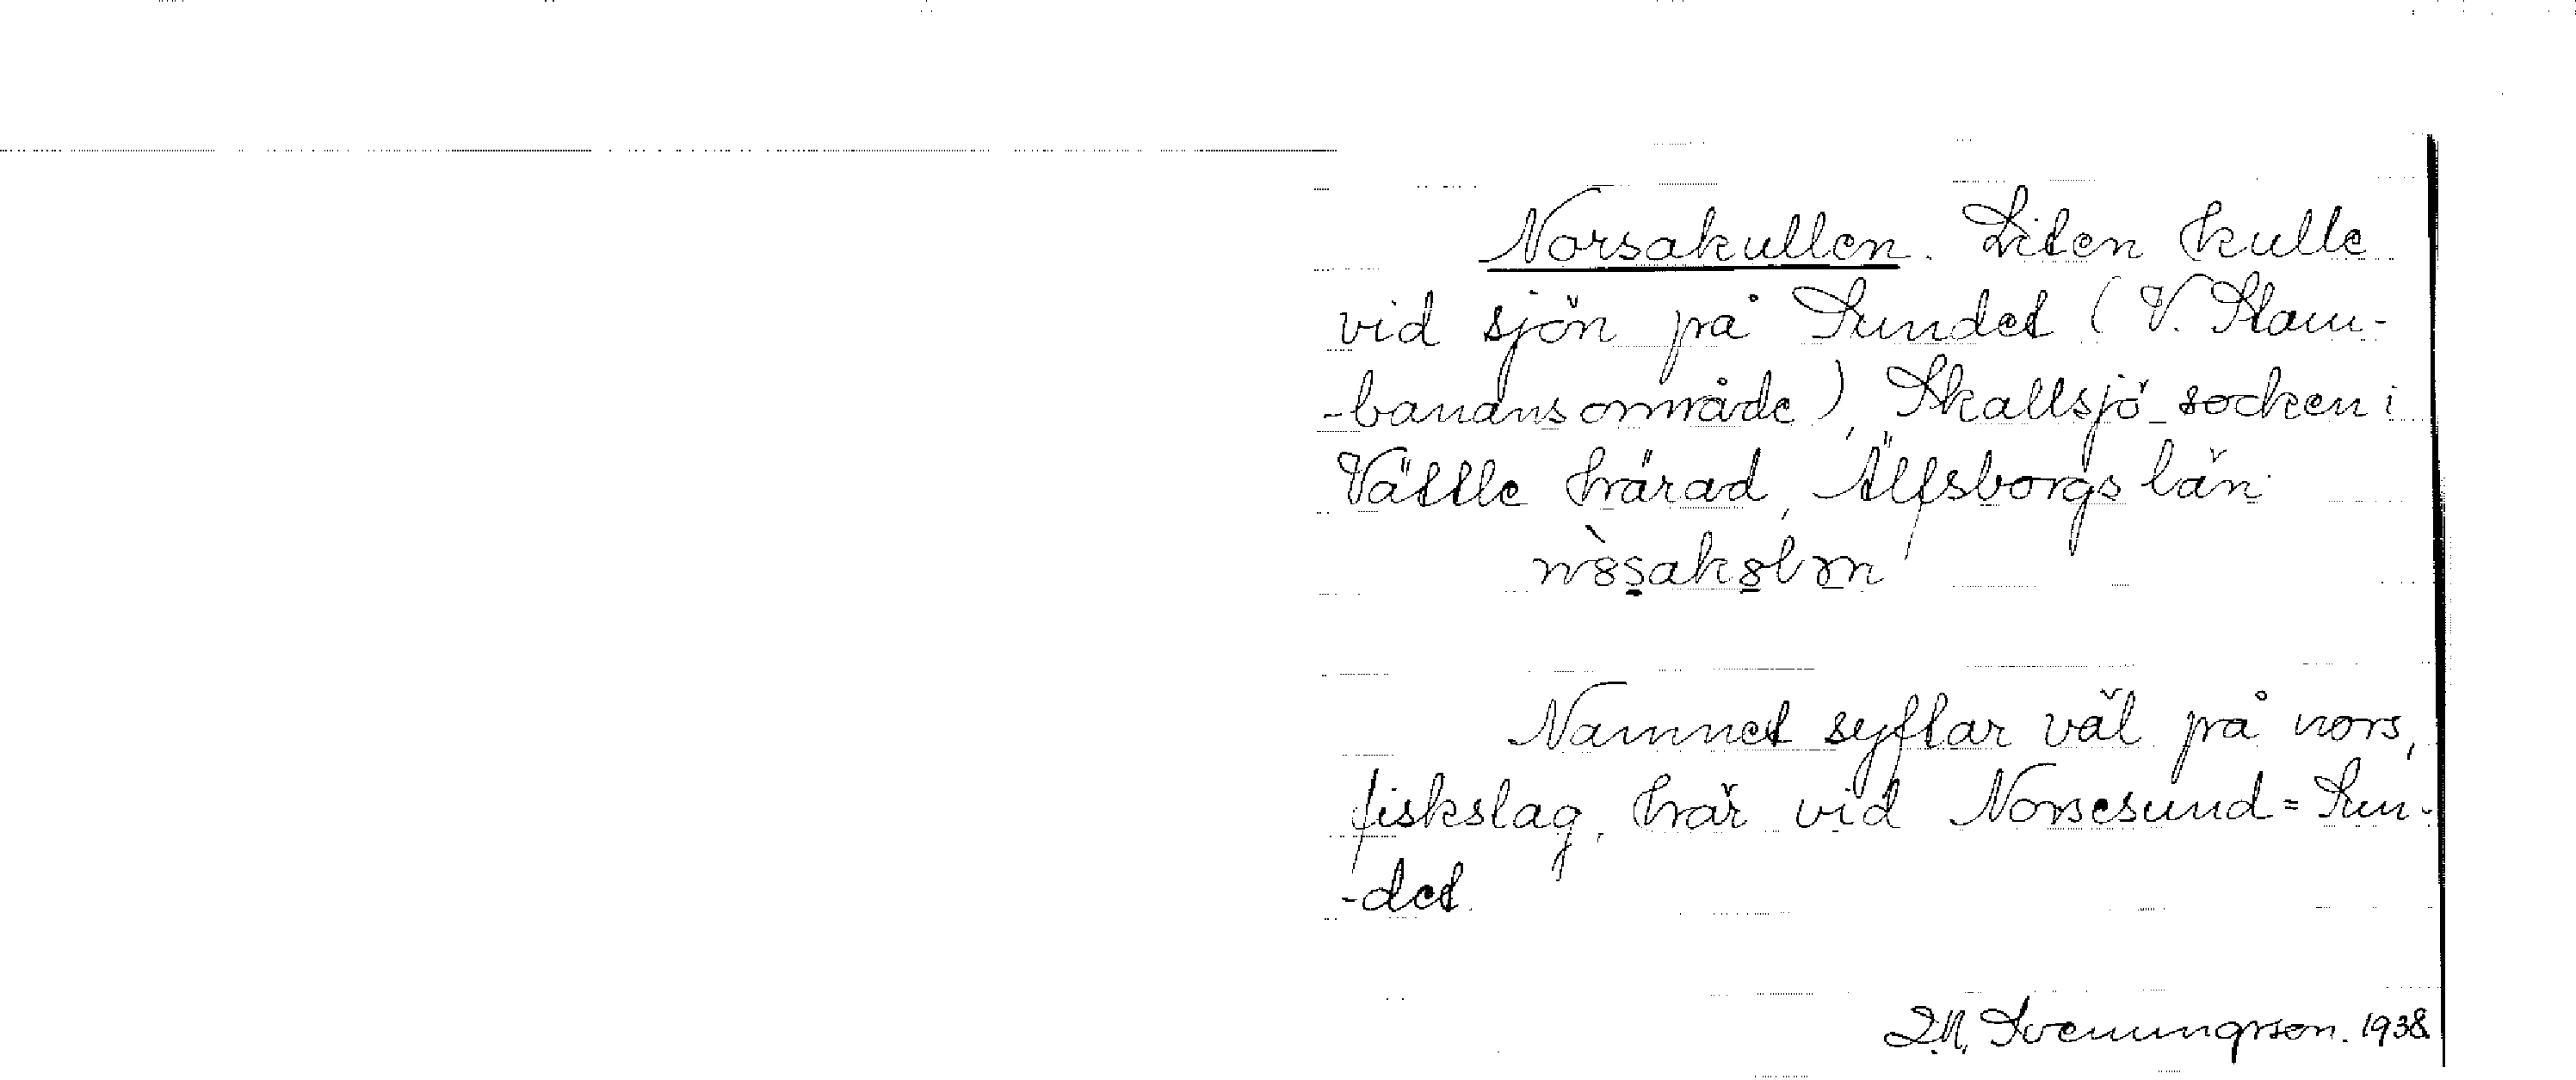 Norsakullen. Liten kulle
vid sjön på Sundet (V. Stam-
-banans område), Skallsjö socken i
Vättle härad, Älfsborgs län
Namnet syftar väl på nors,
fiskslag, här vid Norsesund = Sun-
-det.
Svenungsson. 1938